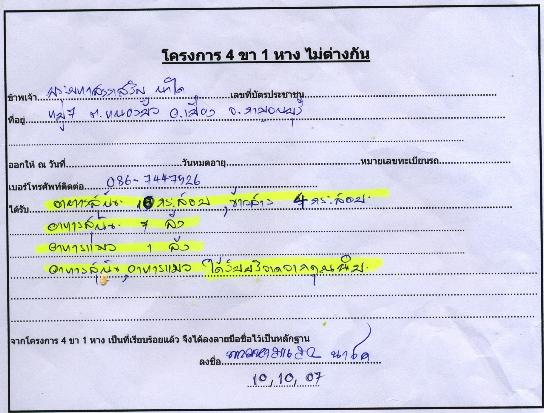 โครงการ 4 ขา 1 หาง ไม่ต่างกัน
ข้าพเจ้า เลขที่บัตรประชาชน
ที่อยู่ หมู่ 7 ต.หนองบัว อ.เมือง จ.กาญจนบุรี
ออกให้ ณ วันที่ วันหมดอายุ หมายเลขทะเบียนรถ
เบอร์โทรศัพท์ติดต่อ 086-7447926
ได้รับ อาหารสุนัข 10 กระสอบ, ข้าวสาร 4 กระสอบ
อาหารสุนัข 7 ลัง
อาหารแมว 1 ลัง
อาหารสุนัข, อาหารแมว ได้รับบริจาคจากคุณ
จากโครงการ 4 ขา 1 หาง เป็นที่เรียบร้อยแล้ว จึงได้ลงลายมือชื่อไว้เป็นหลักฐาน
ลงชื่อ
10, 10, 07